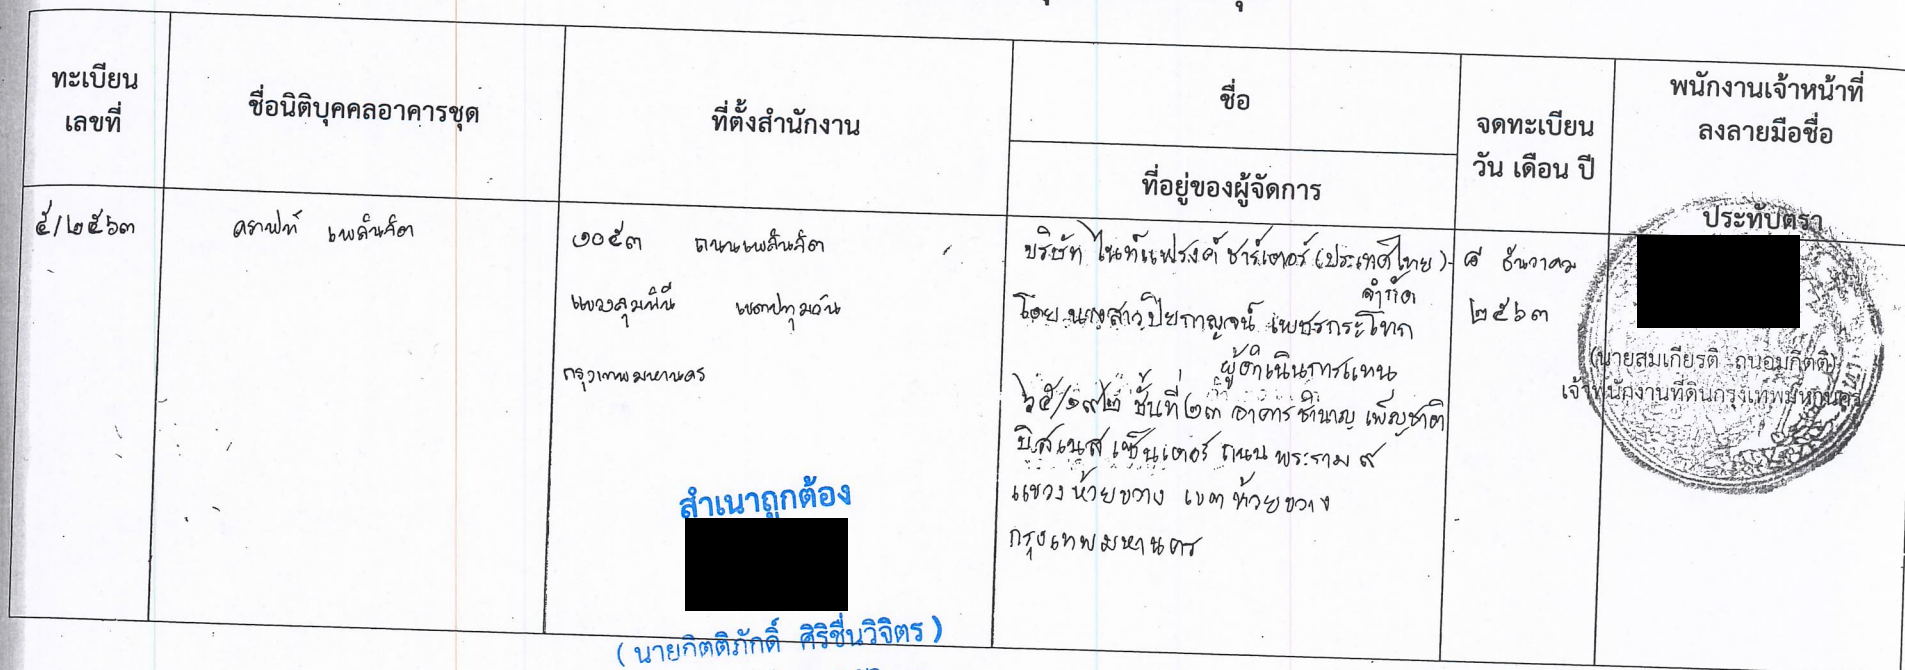 ทะเบียน
เลขที่
ชื่อนิติบุคคลอาคารชุด
ที่ตั้งสำนักงาน
ชื่อ
ที่อยู่ของผู้จัดการ
จดทะเบียน
วัน เดือน ปี
พนักงานเจ้าหน้าที่
ลงลายมือชื่อ
ประทับตรา
๕/๒๕๖๓
คราฟท์ เพลินจิต
๑๐๕๓ ถนนเพลินจิต
แขวงลุมพินี เขตปทุมวัน
กรุงเทพมหานคร
บริษัท ไนท์แฟรงค์ ชาร์เตอร์ (ประเทศไทย)
จำกัด
โดย นางสาวปิยกาญจน์ เพชรกระโทก
ผู้ดำเนินการแทน
๖๕/๑๙๒ ชั้นที่ ๒๓ อาคาร ชำนาญ เพ็ญชาติ
บิสเนส เซ็นเตอร์ ถนน พระราม ๙
แขวง ห้วยขวาง เขต ห้วยขวาง
กรุงเทพมหานคร
๔ ธันวาคม
๒๕๖๓
(นายสมเกียรติ ถนอมกิตติ)
เจ้าพนักงานที่ดินกรุงเทพมหานคร
สำเนาถูกต้อง
(นายกิตติภักดิ์ ศิริชื่นวิจิตร)